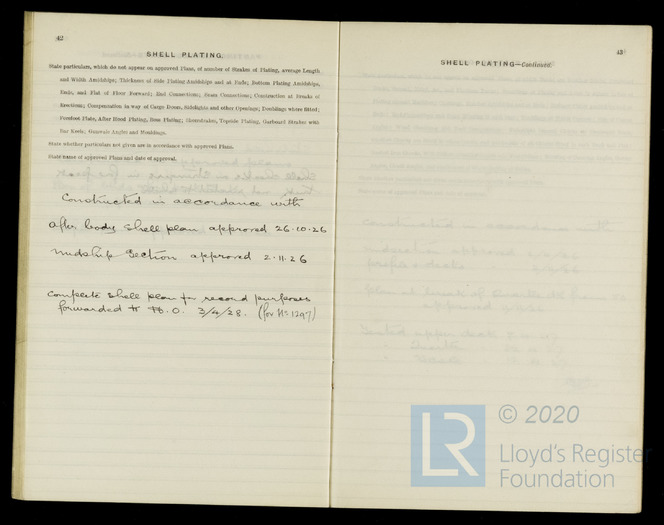 42
SHELL PLATING.
State particulars, which do not appear on approved Plans, of number of Strakes of Plating, average Length
and Width Amidships; Thickness of Side Plating Amidships and at Ends; Bottom Plating Amidships,
Ends, and Flat of Floor Forward; End Connections; Seam Connections; Construction at Breaks of
Erections; Compensation in way of Cargo Doors, Sidelights and other Openings; Doublings where fitted;
Forefoot Plate, After Hood Plating, Boss Plating; Sheerstrakes, Topside Plating, Garboard Strakes with
Bar Keels; Gunwale Angles and Mouldings.
State whether particulars not given are in accordance with approved Plans.
State name of approved Plans and date of approval.
Constructed in accordance with
after body shell plan approved 26.10.26
midship section approved 2.11.26
Complete shell plan for record purposes
forwarded to H.O. 3/4/28. (for No 1297)
43
SHELL PLATING—Continued.
LR
© 2020
Lloyd's Register
Foundation